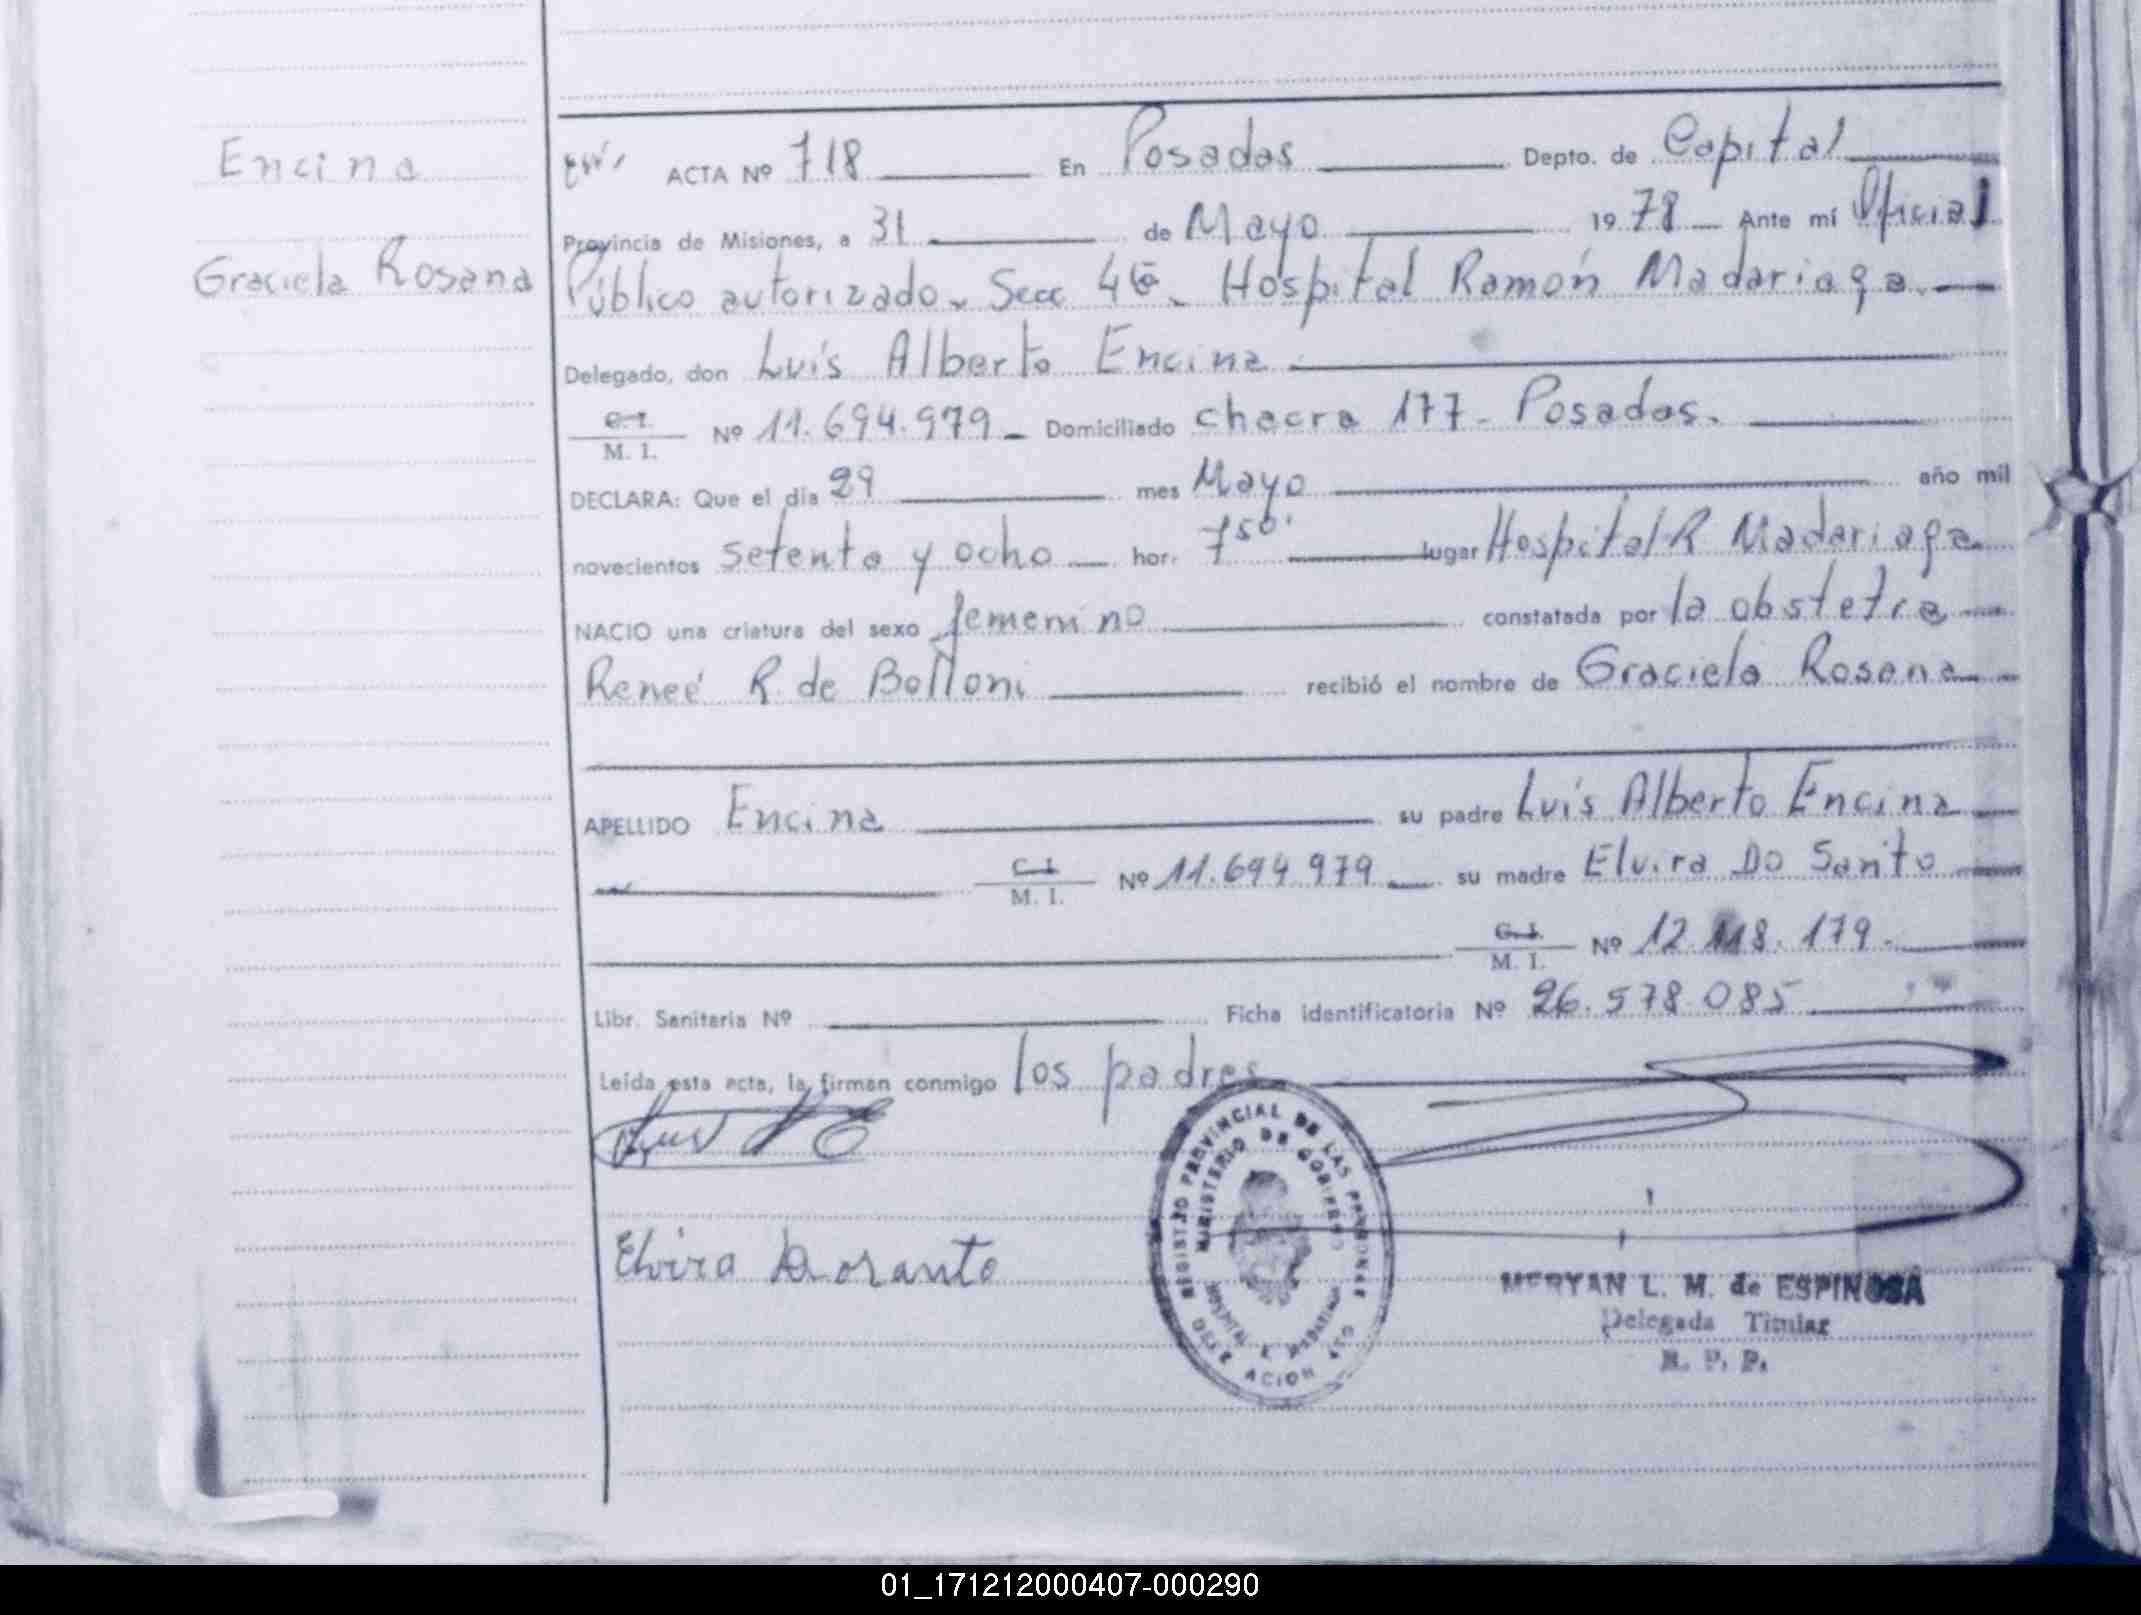 Encina
Graciela Rosana
ACTA Nº 718 En Posadas Depto. de Capital
Provincia de Misiones, a 31 de Mayo 1978 Ante mí Oficial
Público autorizado. Secc 4ta. Hospital Ramón Madariaga.
Delegado, don Luis Alberto Encina
C. I.
M. I.
Nº 11.694.979 Domiciliado chacra 177 - Posadas.
DECLARA: Que el día 29 mes Mayo año mil
novecientos setenta y ocho hor. 7 50' lugar Hospital R Madariaga
NACIO una criatura del sexo femenino constatada por la obstetra
Reneé R. de Bolloni recibió el nombre de Graciela Rosana
APELLIDO Encina su padre Luis Alberto Encina
C. I.
M. I.
Nº 11.694.979 su madre Elvira Do Santo
C. I.
M. I.
Nº 12.118.179.
Libr. Sanitaria Nº Ficha identificatoria Nº 26.578.085
Leída esta acta, la firman conmigo los padres
Elvira Dosanto
REGISTRO PROVINCIAL DE LAS PERSONAS
MINISTERIO DE GOBIERNO
HOSPITAL R. MADARIAGA
MERYAN L. M. de ESPINOSA
Delegada Titular
R. P. P.
01_171212000407-000290